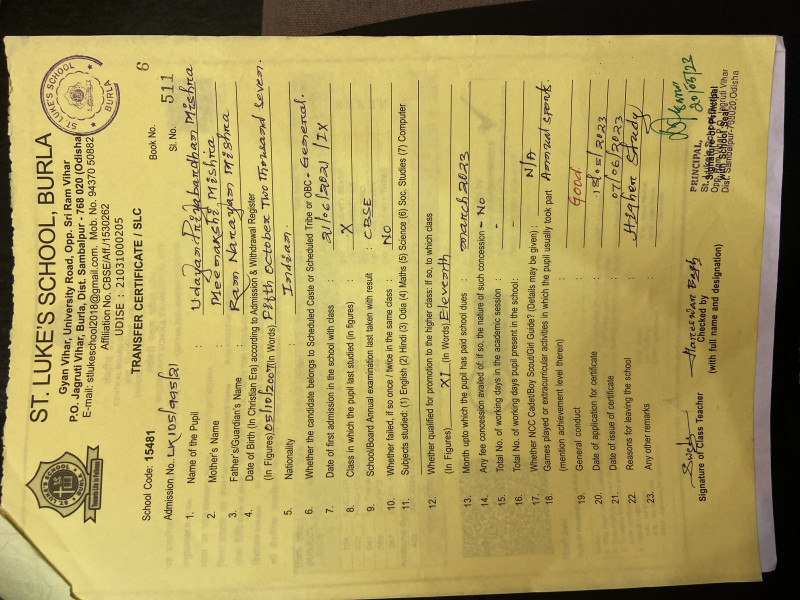 ST. LUKE'S SCHOOL, BURLA
Gyan Vihar, University Road, Opp. Sri Ram Vihar
P.O. Jagruti Vihar, Burla, Dist. Sambalpur - 768 020 (Odisha)
E-mail: stlukeschool2018@gmail.com. Mob. No. 94370 50882
Affiliation No. CBSE/Aff./1530262
UDISE : 21031000205
ST. LUKE'S SCHOOL
BURLA
TRANSFER CERTIFICATE / SLC
School Code: 15481 Book No. 6
Admission No. LK105/995/21 Sl. No. 511
1. Name of the Pupil : Udayan Priyabardhan Mishra
2. Mother's Name : Meenakshi Mishra
3. Father's/Guardian's Name : Ram Narayan Mishra
4. Date of Birth (In Christian Era) according to Admission & Withdrawal Register
(In Figures) 05/10/2007 (In Words) Fifth October Two thousand seven.
5. Nationality : Indian
6. Whether the candidate belongs to Scheduled Caste or Scheduled Tribe or OBC - General.
7. Date of first admission in the school with class : 21/06/2021 / IX
8. Class in which the pupil last studied (in figures) : X
9. School/Board Annual examination last taken with result : CBSE
10. Whether failed, if so once / twice in the same class : NO
11. Subjects studied: (1) English (2) Hindi (3) Odia (4) Maths (5) Science (6) Soc. Studies (7) Computer
12. Whether qualified for promotion to the higher class: If so, to which class
(In Figures) XI (In Words) Eleventh
13. Month upto which the pupil has paid school dues : March 2023
14. Any fee concession availed of: if so, the nature of such concession - No
15. Total No. of working days in the academic session : -
16. Total No. of working days pupil present in the school : -
17. Whether NCC Cadet/Boy Scout/Girl Guide? (Details may be given) : N/A
18. Games played or extracurricular activities in which the pupil usually took part Annual sports.
(mention achievement level therein)
19. General conduct : Good
20. Date of application for certificate : 18/05/2023
21. Date of issue of certificate : 07/06/2023
22. Reasons for leaving the school : Higher Study
23. Any other remarks :
Signature of Class Teacher
Checked by
(with full name and designation)
Signature of Principal
with School Seal
PRINCIPAL,